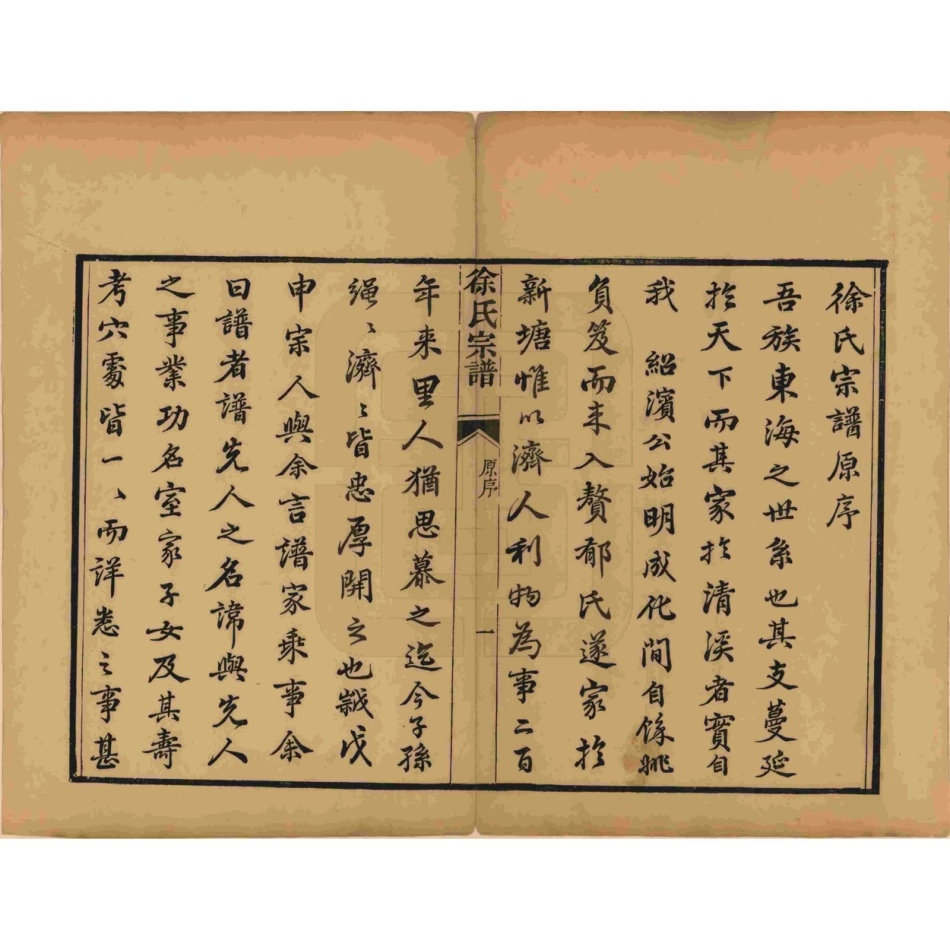 徐氏宗譜原序
吾族東海之世系也其支蔓延
於天下而其家於清溪者實自
我 紹濱公始明成化間自餘姚
負笈而来入贅郁氏遂家於
新塘惟以濟人利物為事二百
徐氏宗譜 原序 一
年来里人猶思慕之迄今子孫
繩〻濟〻皆忠厚開之也歲戊
申宗人與余言譜家乘事余
曰譜者譜先人之名諱與先人
之事業功名室家子女及其壽
考穴處皆一〻而詳悉之事甚